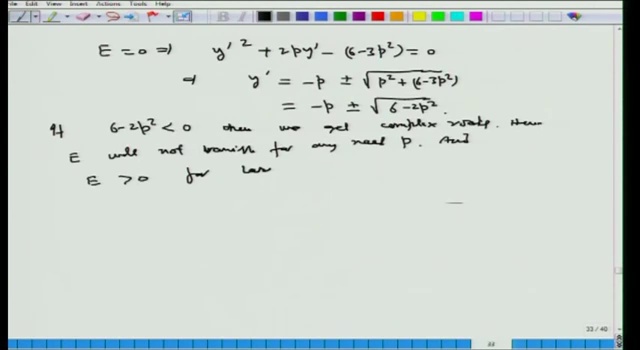 Edit View Insert Actions Tools Help
E = 0 ⇒ y'² + 2py' - (6-3p²) = 0
⇒ y' = -p ± √(p² + (6-3p²))
= -p ± √(6-2p²).
If 6-2p² < 0 then we get complex roots. Hence
E will not vanish for any real p. And
E > 0 for lar
33 / 40
33